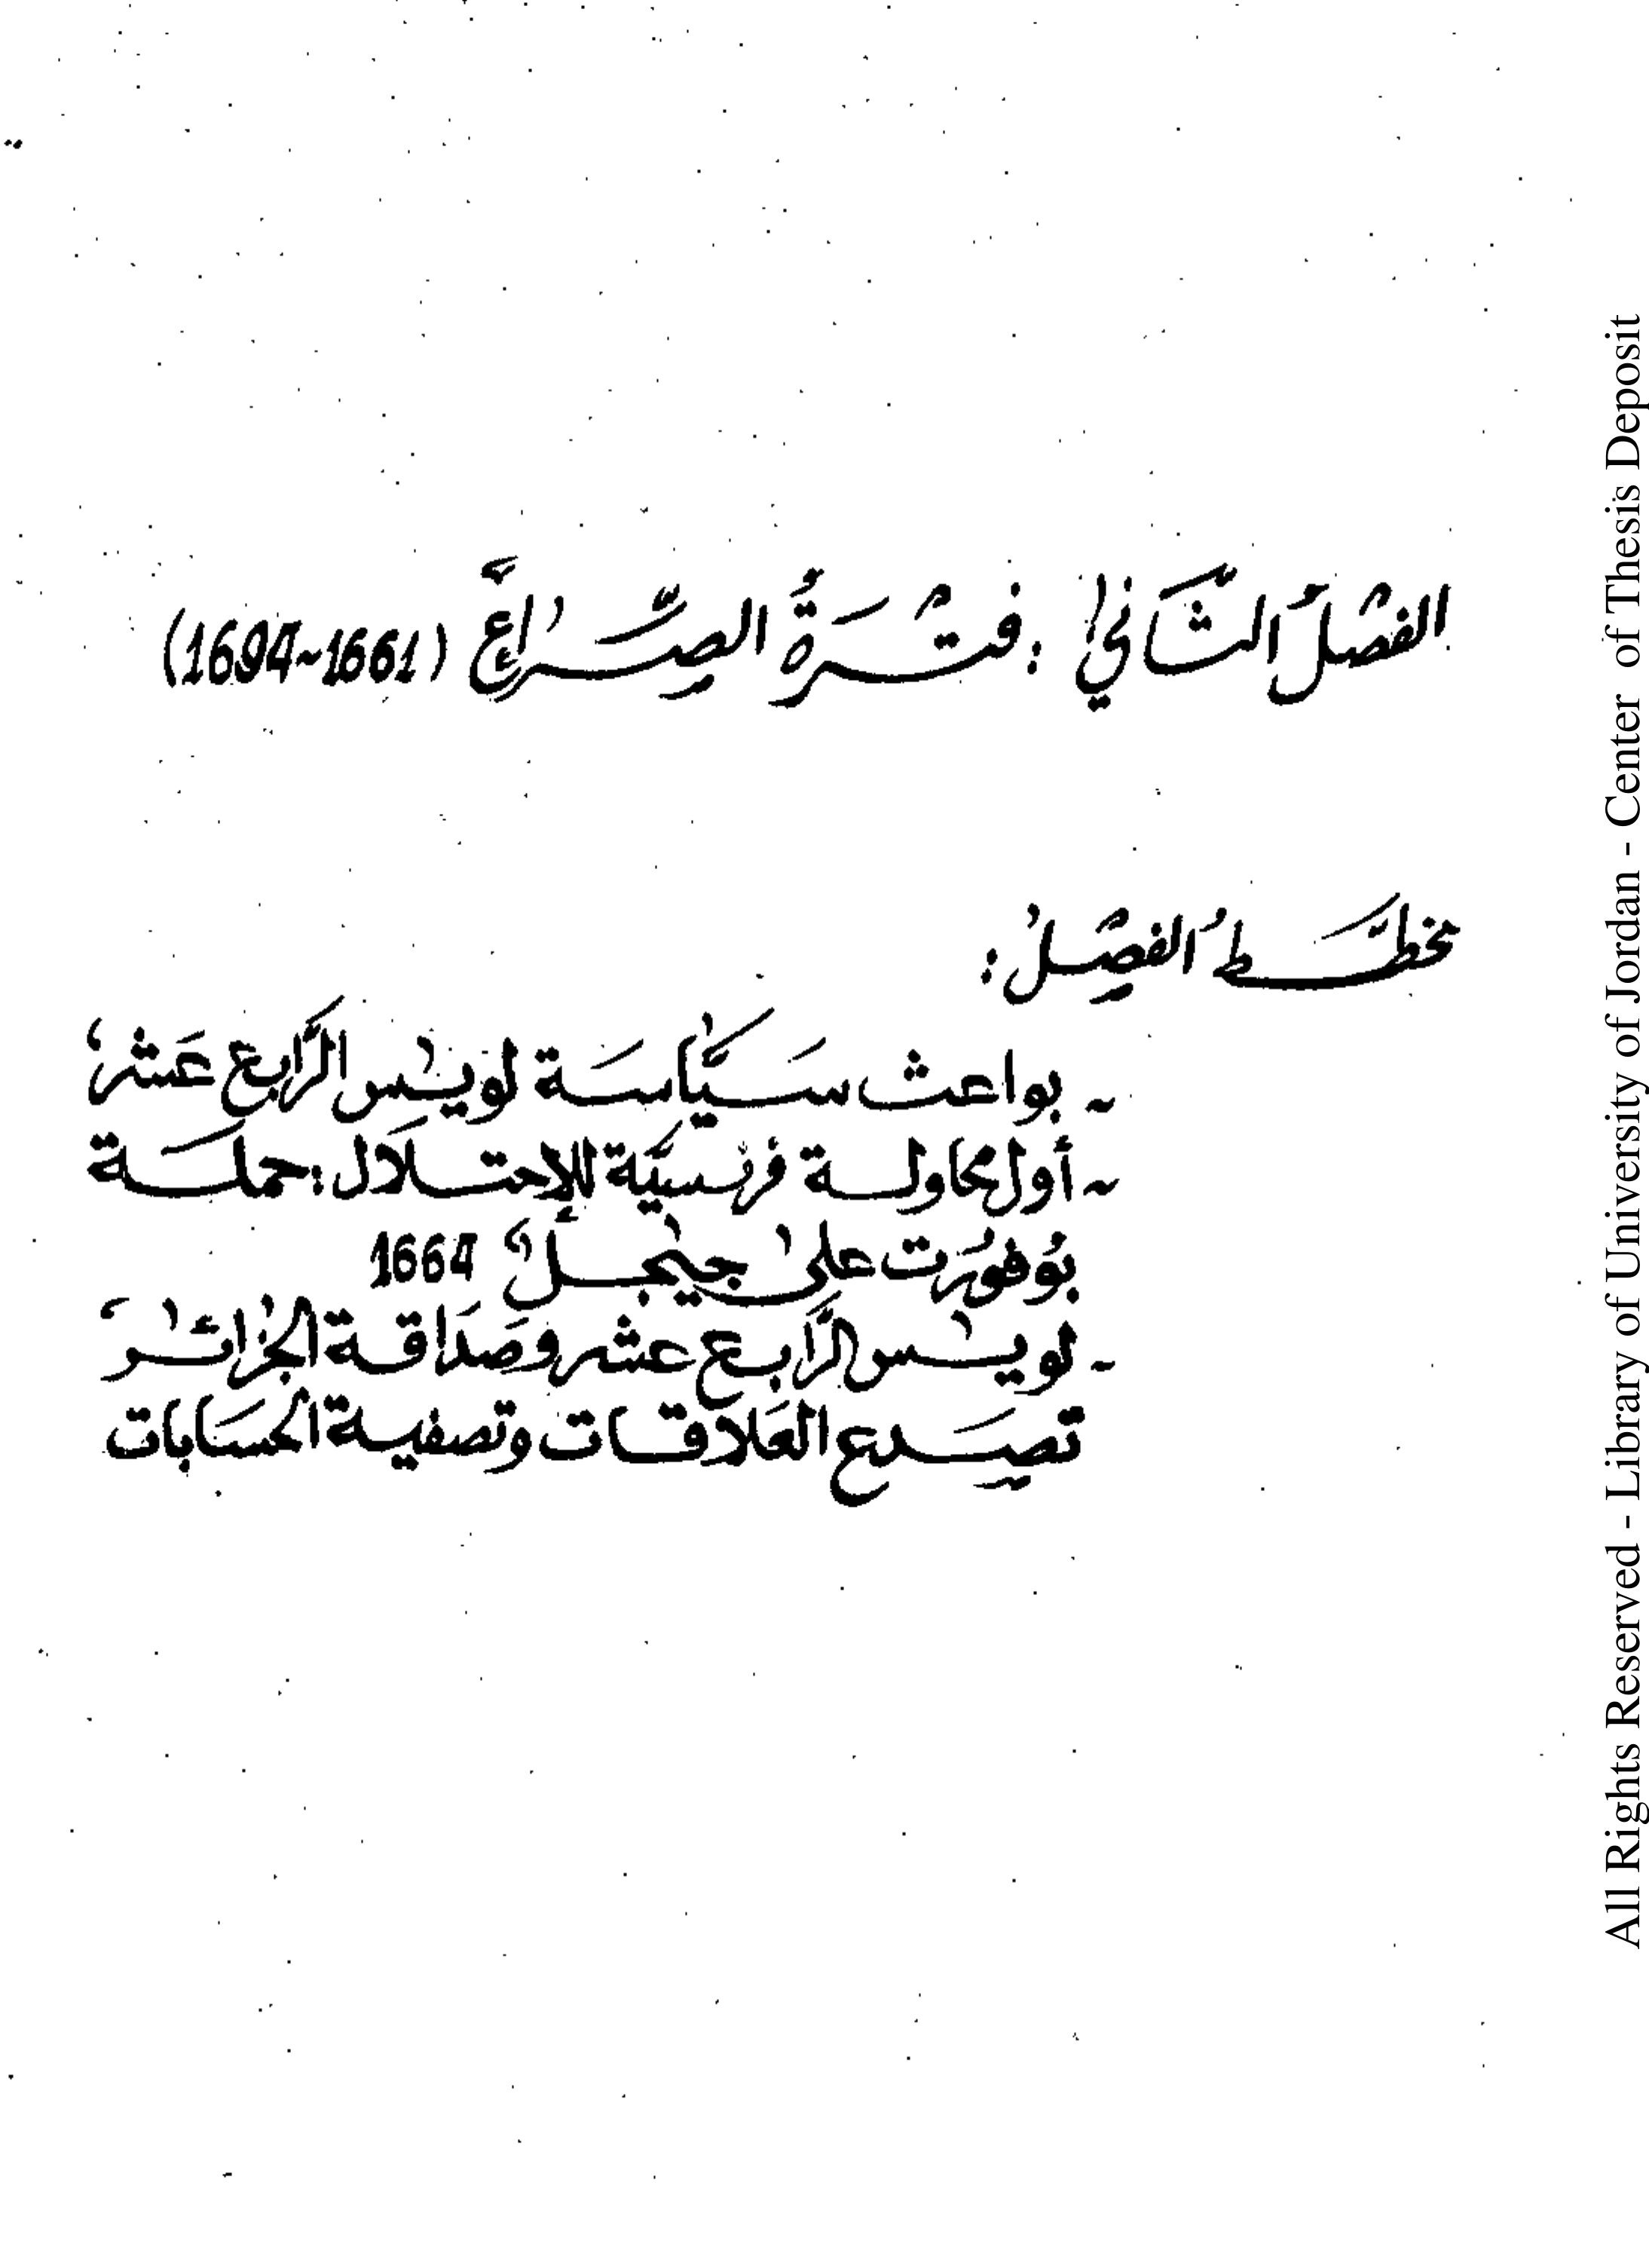 الفصل الثاني : فترة الصراع (1661~1694)
مخطط الفصل :
~ بواعث سياسة لويس الرابع عشر
~ أول محاولة فرنسية للإحتلال : حملة
بوفورت على جيجل 1664
~ لويس الرابع عشر وصداقة الجزائر
تصدع العلاقات وتصفية الحسابات
All Rights Reserved - Library of University of Jordan - Center of Thesis Deposit